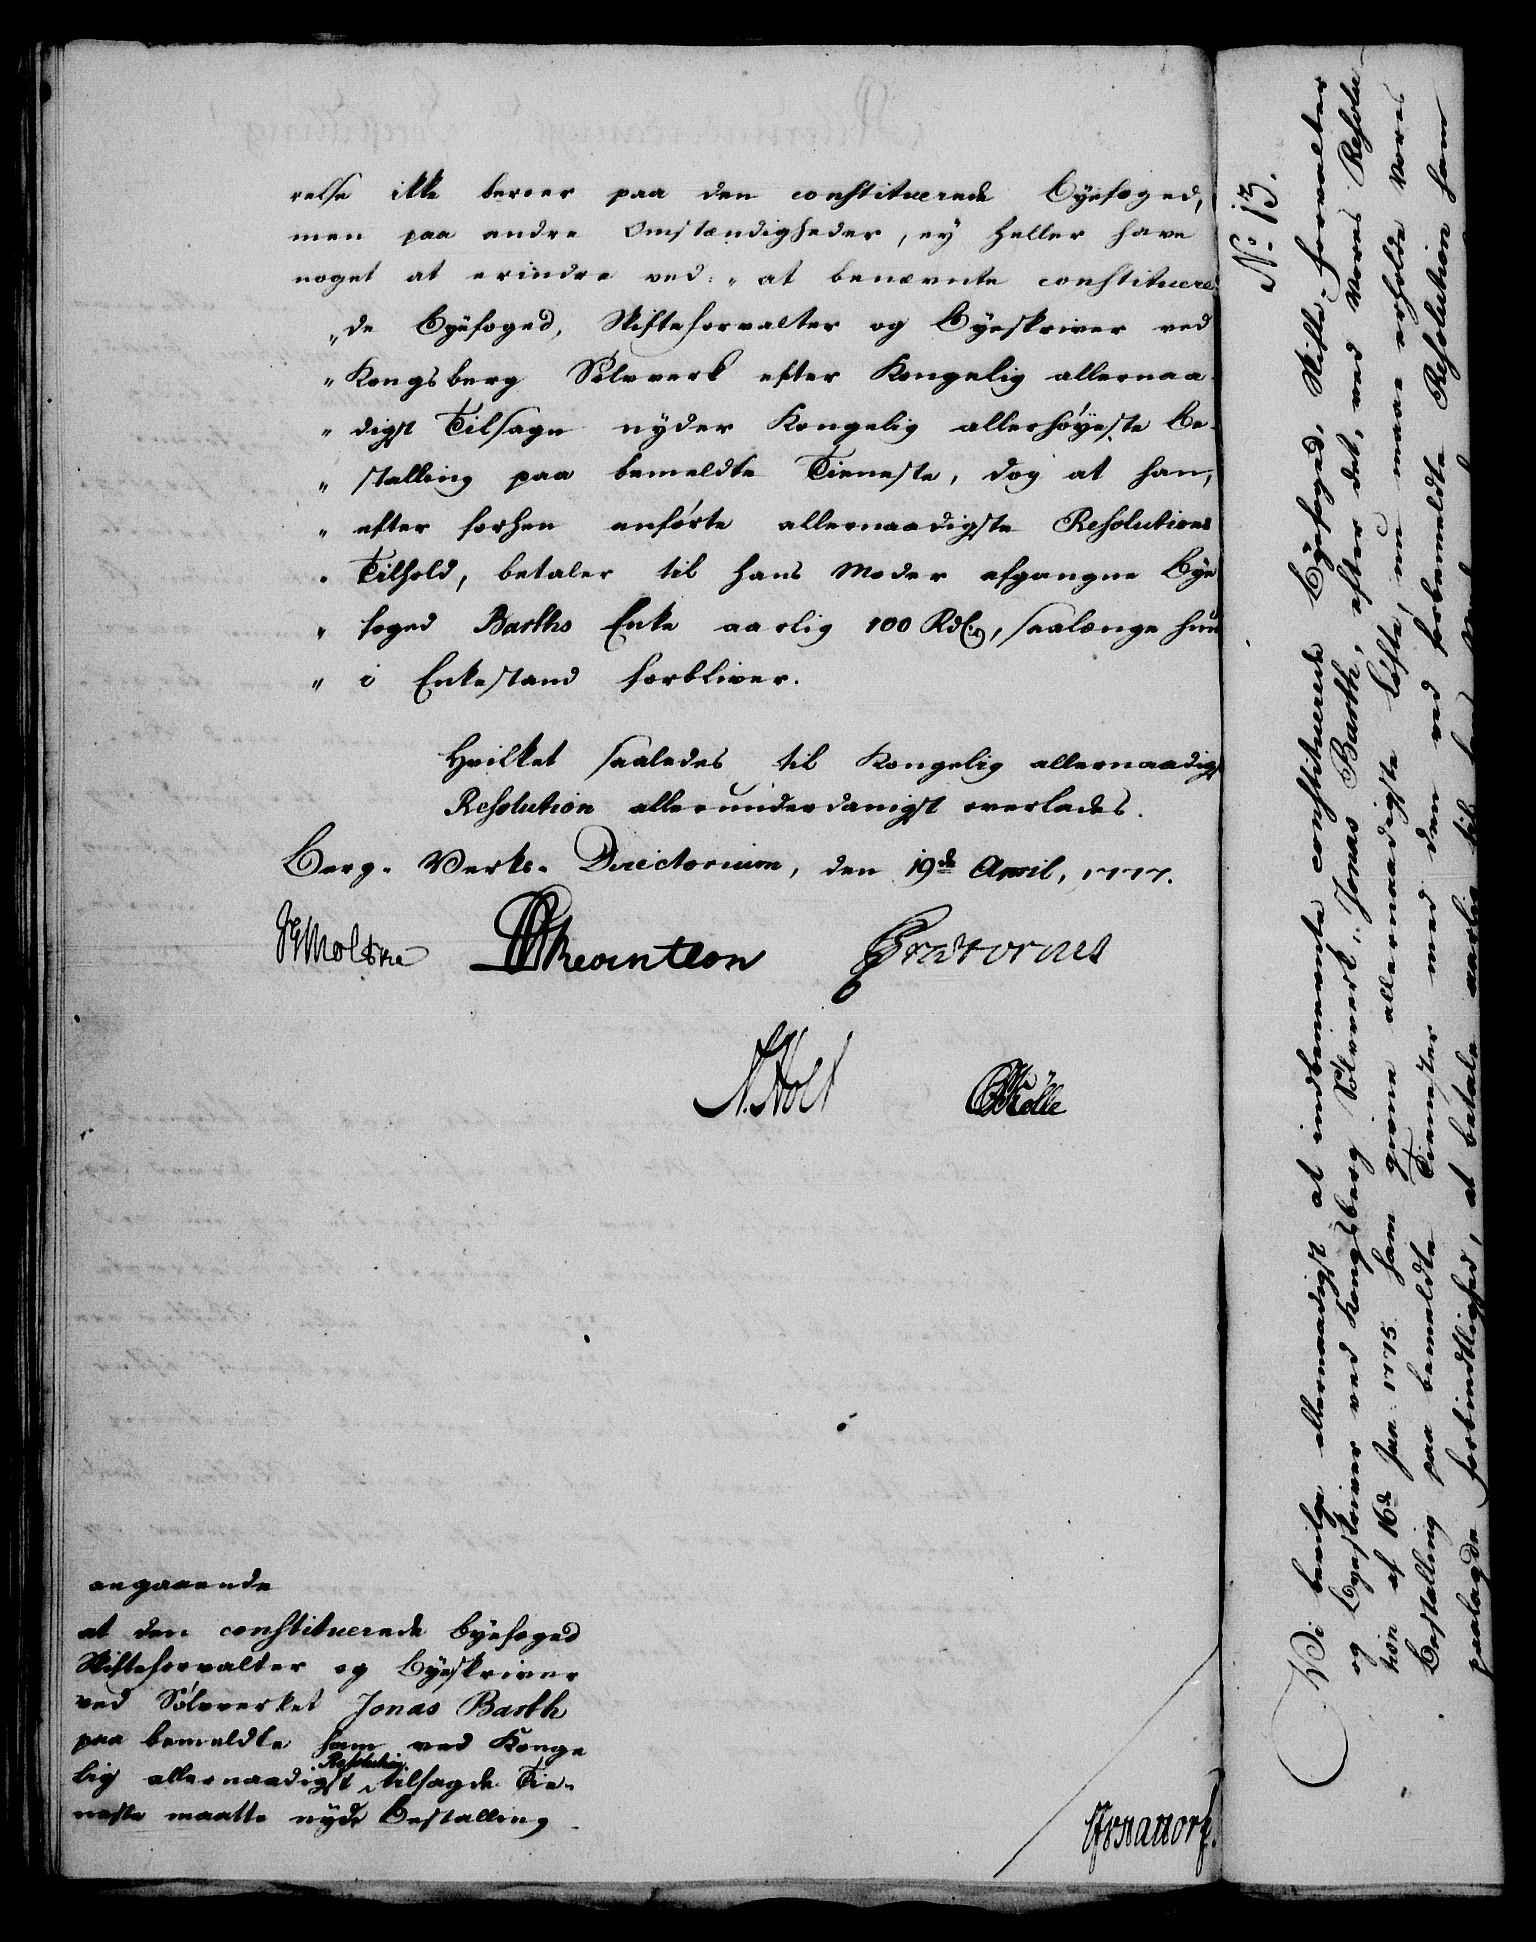 relse ikke beroer paa den constituerede Byefoged,
men paa andre Omstændigheder, ey heller have
noget at erindre ved: „at benævnte constituere-
„de Byefoged, Skifteforvalter og Byeskriver ved
„Kongsberg Sølvverk efter Kongelig allernaa-
„digst Tilsagn nyder Kongelig allerhøyeste Be-
„stalling paa bemeldte Tieneste, dog at han,
„efter forhen anførte allernaadigste Resolutions
„Tilhold, betaler til hans Moder afgangne Bye
„foged Barths Enke aarlig 100 Rdlr, saalænge hun
„i Enkestand forbliver.
Hvilket saaledes til Kongelig allernaadigst
Resolution allerunderdanigst overlades.
Berg-Verks-Directorium, den 19de April, 1777.
JGMoltke Prætorius
N.Holt Kølle
angaaende
at den constituerede Byefoged
Skifteforvalter og Byeskriver
ved Sølvverket Jonas Barth
paa bemeldte ham ved Konge
lig allernaadigst Resolution tilsagde Tie-
neste maatte nyde Bestalling
No. 13.
Vi bevilge allernaadigst at indbenævnte constituerede Byefoged, Skifte-Forvalter
og Byeskriver ved Kongsberg Sølvverk, Jonas Barth, efter det, ved Vores Resolu-
tion af 16de Jan: 1775. ham givne allernaadigste Løfte, nu maae erholde Vores
Bestalling paa bemeldte Tienester med den ved forbemeldte Resolution ham
paalagde Forbindtlighed, at betale aarlig til